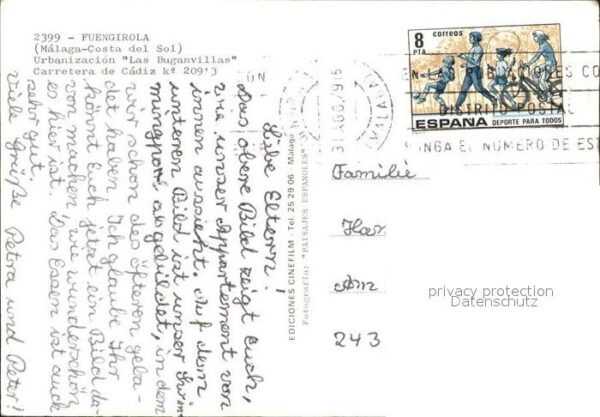 2399 - FUENGIROLA
(Málaga-Costa del Sol)
Urbanización "Las Buganvillas"
Carretera de Cádiz kº 209'3
Liebe Eltern!
Das obere Bild zeigt Euch,
wie unser Appartement von
innen aussieht. Auf dem
unteren Bild ist unser Swim-
mingpool abgebildet, in dem
wir schon des öfteren geba-
det haben. Ich glaube Ihr
könnt Euch jetzt ein Bild da-
von machen, wie wunderschön
es hier ist. Das Essen ist auch
sehr gut.
Viele Grüße Petra und Peter!
EDICIONES CINEFILM - Tel. 25 29 06 - Málaga
Fotografía: "PAISAJES ESPAÑOLES"
8
PTA
correos
ESPAÑA DEPORTE PARA TODOS
DISTRITO POSTAL
PONGA EL NUMERO DE EST
Familie
Har
Am
243
privacy protection
Datenschutz